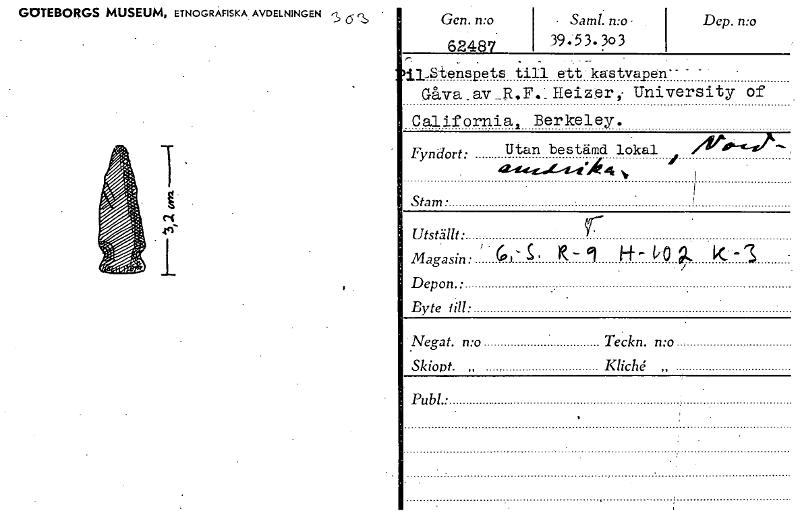 GÖTEBORGS MUSEUM, ETNOGRAFISKA AVDELNINGEN 303
3,2 cm
Gen. n:o Saml. n:o Dep. n:o
62487 39.53.303
Pil Stenspets till ett kastvapen
Gåva av R.F. Heizer, University of
California, Berkeley.
Fyndort: Utan bestämd lokal, Nord-
amerika.
Stam:
Utställt:
Magasin: 6,-S. R-9 H-102 K-3
Depon.:
Byte till:
Negat. n:o Teckn. n:o
Skiopt. „ Kliché „
Publ.: